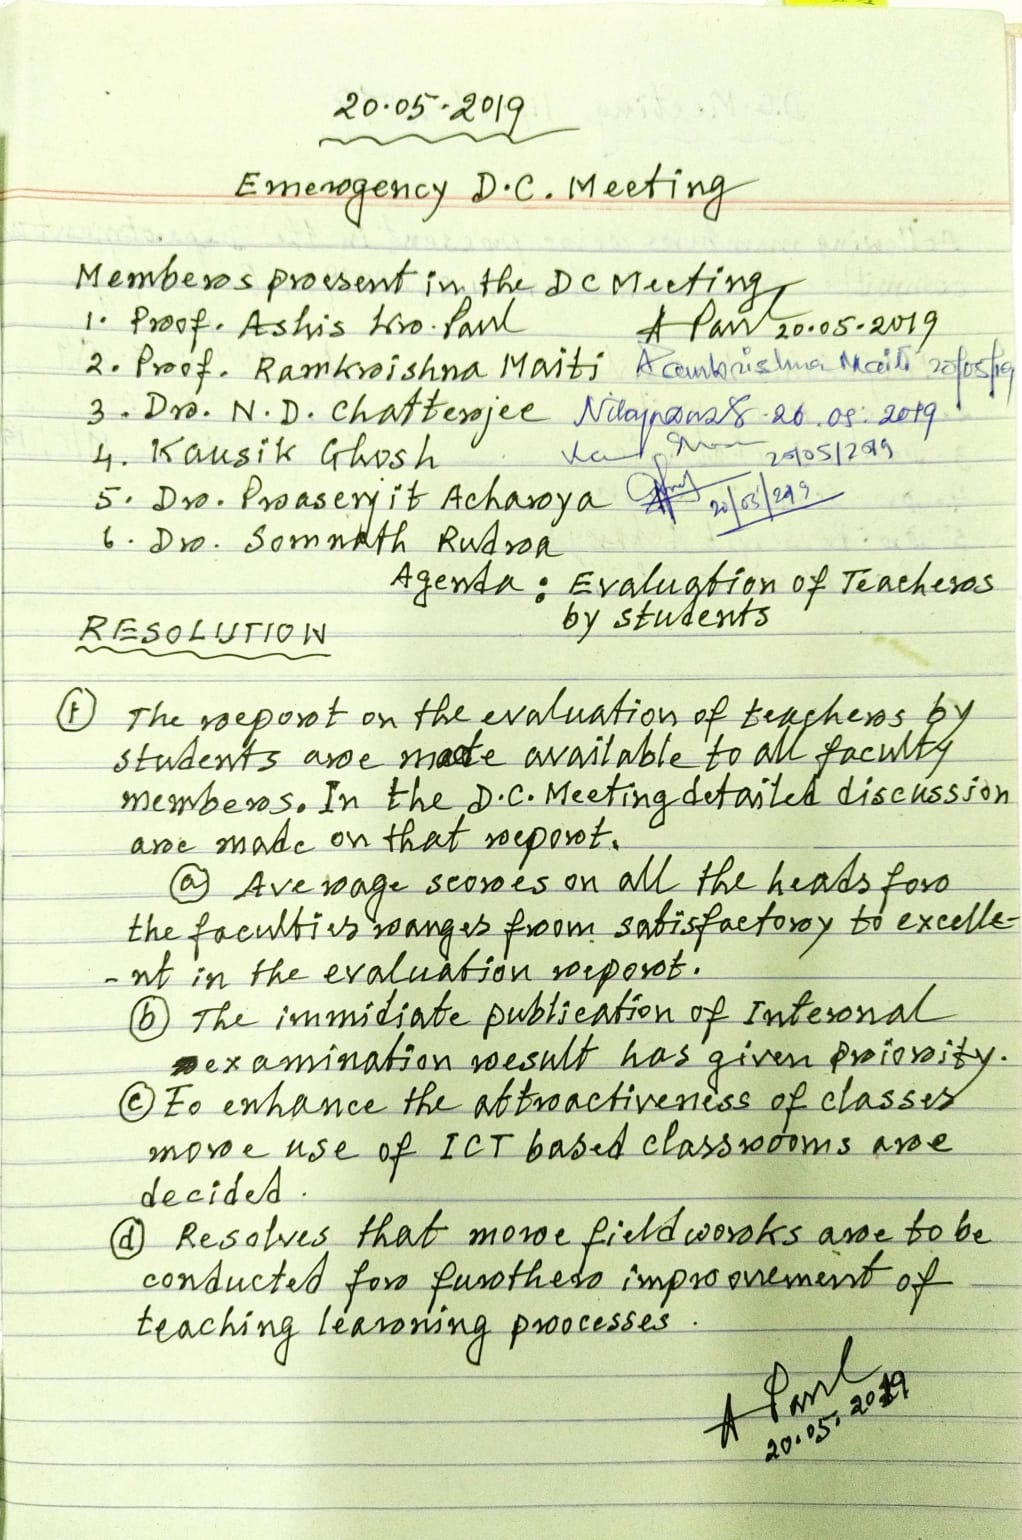 20.05.2019
Emergency D.C. Meeting
Members present in the DC Meeting
1. Prof. Ashis Kr. Paul A Paul 20.05.2019
2. Prof. Ramkrishna Maiti Ramkrishna Maiti 20/05/19
3. Dr. N.D. Chatterjee 20.05.2019
4. Kausik Ghosh 20/05/2019
5. Dr. Prasenjit Acharya 20/05/2019
6. Dr. Somnath Rudra
Agenda : Evaluation of Teachers
by students
RESOLUTION
① The report on the evaluation of teachers by
students are made available to all faculty
members. In the D.C. Meeting detailed discussion
are made on that report.
ⓐ Average scores on all the heads for
the faculties ranges from satisfactory to excelle-
-nt in the evaluation report.
ⓑ The immidiate publication of Internal
examination result has given priority.
ⓒ To enhance the attractiveness of classes
more use of ICT based classrooms are
decided.
ⓓ Resolves that more fieldworks are to be
conducted for further improvement of
teaching learning processes.
A Paul
20.05.2019